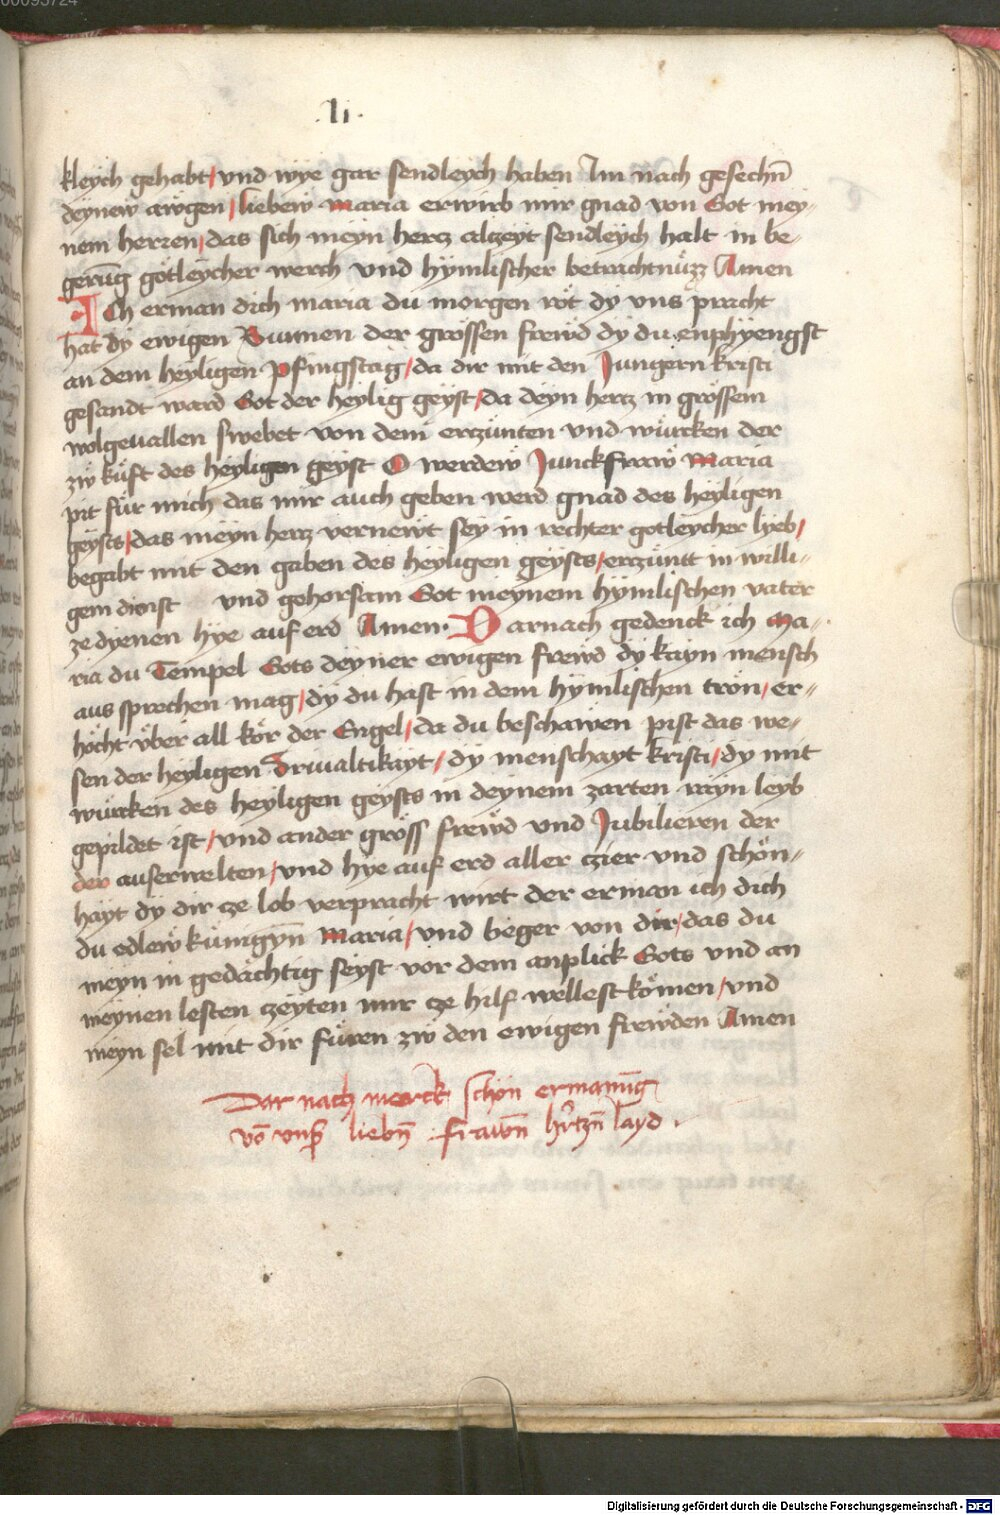 .li.
kleych gehabt/ vnd wye gar sendleych haben Im nach gesechn̄
deynew awgen/ liebew maria erwirb mir gnad von Got mey-
nem herren/ das sich meyn hercz alczeyt sendleych halt in be-
gerūg götleycher werch vnd hymlischer betrachtnüzz Amen
ICh erman dich maria du morgen röt dy vns pracht
hat dy ewigen Sunnen der grössen frewd dy du enphyengst
an dem heyligen pfingstag/ da dir mit den Jungern kristi
gesandt ward Got der heylig geyst/ da deyn hercz in grössem
wolgeuallen swebet von dem erczünten vnd würcken der
zw küft des heyligen geyst O werdew Junckfraw Maria
pit für mich das mir auch geben werd gnad des heyligen
geysts/ das meyn hercz vernewt sey in rechter gotleycher lyeb/
begabt mit den gaben des heyligen geysts/ erczüntt in willi-
gem dienst vnd gehorsam Got meynem hymlischen vater
ze dyenen hye auf erd Amen. Darnach gedenck ich Ma-
ria du Tempel Gots deyner ewigen frewd dy kayn mensch
aus sprechen mag/ dy du hast in dem hymlischen trön/ er-
höcht vber all kör der Engel/ da du beschawen pist das we-
sen der heyligen Driualtikayt/ dy menschayt kristi/ dy mit
würcken des heyligen geysts in deynem zarten rayn leyb
gepildet ist/ vnd ander gröss frewd vnd Jubilieren der
der auserwelten/ vnd hye auf erd aller czier vnd schön-
hayt dy dir cze lob verpracht wirt der erman ich dich
du edlew künigyn̄ Maria/ vnd beger von dir/ das du
meyn in gedächtig seyst vor dem anplick Gots vnd an
meynen lesten czeyten mir cze hilf wellest kömen/ vnd
meyn sel mit dir füren zw den ewigen frewden Amen
Dar nach merck schön ermanūg
vō vnsr̄ liebn̄ frawn̄ hr̄tzn̄ layd .
Digitalisierung gefördert durch die Deutsche Forschungsgemeinschaft - DFG